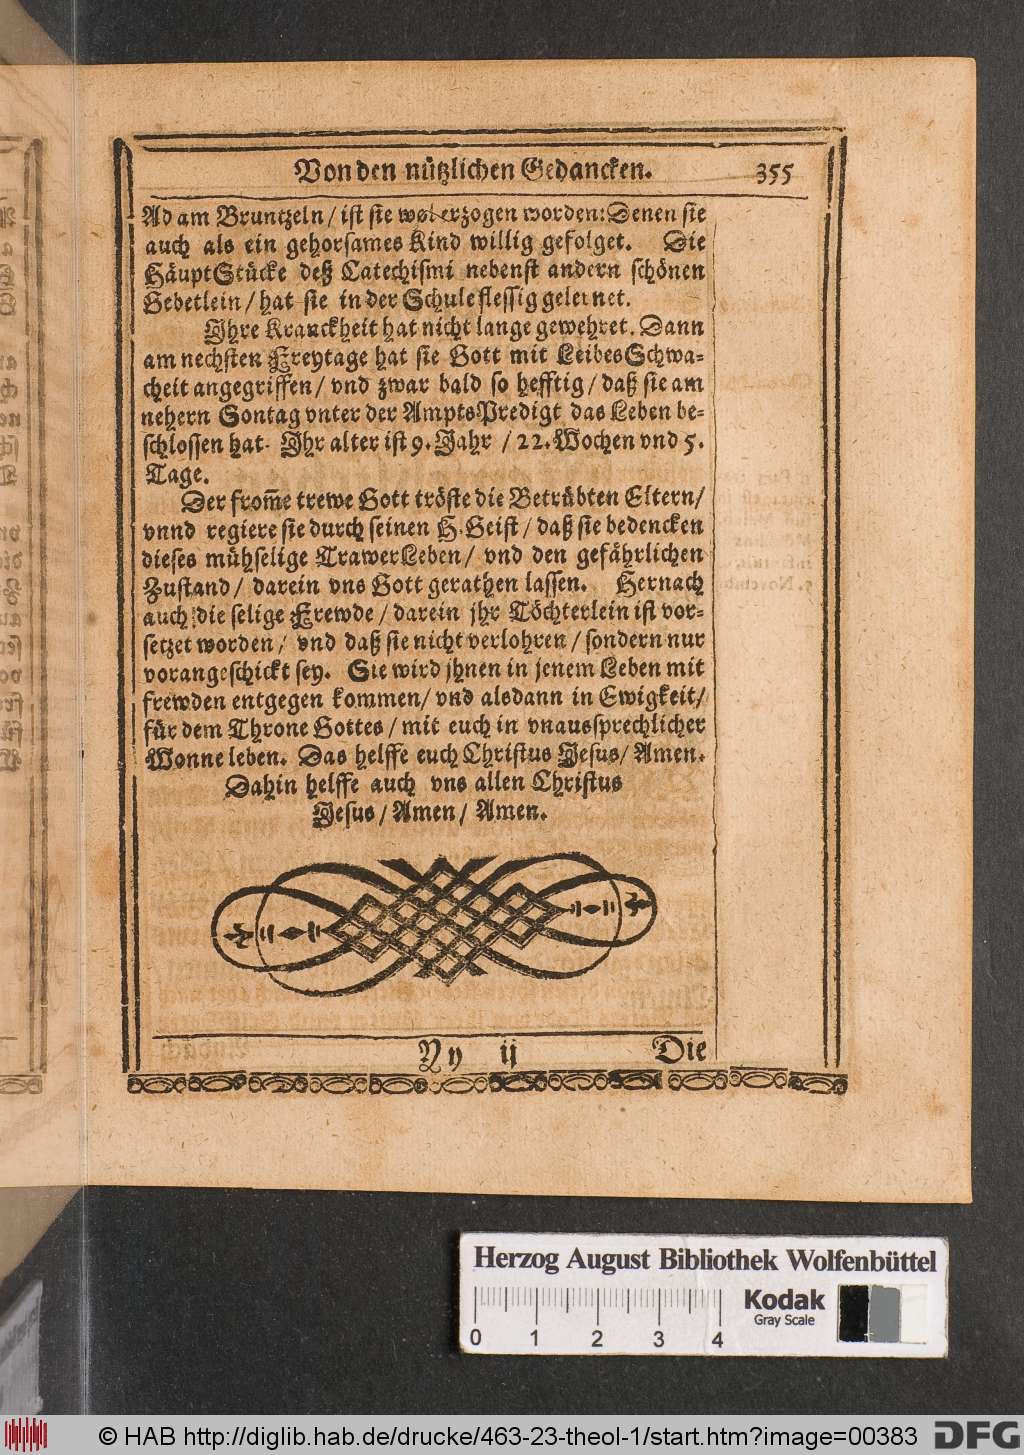 Von den nützlichen Gedancken. 355
Adam Bruntzeln / ist sie wol erzogen worden: Denen sie
auch als ein gehorsames Kind willig gefolget. Die
HäuptStücke deß Catechismi nebenst andern schönen
Gebetlein / hat sie in der Schule flessig gelernet.
Ihre Kranckheit hat nicht lange gewehret. Dann
am nechsten Freytage hat sie Gott mit LeibesSchwa-
cheit angegriffen / vnd zwar bald so hefftig / daß sie am
nehern Sontag vnter der AmptsPredigt das Leben be-
schlossen hat. Ihr alter ist 9. Jahr / 22. Wochen vnd 5.
Tage.
Der from̃e trewe Gott tröste die Betrübten Eltern /
vnnd regiere sie durch seinen H. Geist / daß sie bedencken
dieses mühselige TrawerLeben / vnd den gefährlichen
Zustand / darein vns Gott gerathen lassen. Hernach
auch die selige Frewde / darein jhr Töchterlein ist vor-
setzet worden / vnd daß sie nicht verlohren / sondern nur
vorangeschickt sey. Sie wird jhnen in jenem Leben mit
frewden entgegen kommen / vnd alsdann in Ewigkeit /
für dem Throne Gottes / mit euch in vnaussprechlicher
Wonne leben. Das helffe euch Christus Jesus / Amen.
Dahin helffe auch vns allen Christus
Jesus / Amen / Amen.
Yy ij Die
Herzog August Bibliothek Wolfenbüttel
Kodak
Gray Scale
0 1 2 3 4
© HAB http://diglib.hab.de/drucke/463-23-theol-1/start.htm?image=00383
DFG